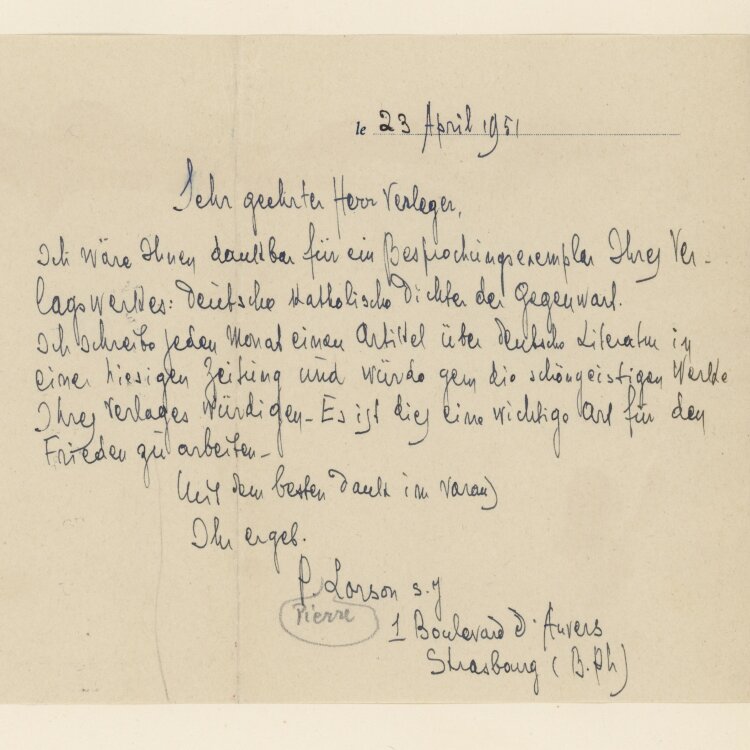 le 23 April 1951
Sehr geehrter Herr Verleger,
Ich wäre Ihnen dankbar für ein Besprechungsexemplar Ihres Ver-
lagswerkes: Deutsche Katholische Dichter der Gegenwart.
Ich schreibe jeden Monat einen Artikel über deutsche Literatur in
einer hiesigen Zeitung und würde gern die schöngeistigen Werke
Ihres Verlages würdigen – Es ist dies eine wichtige Art für den
Frieden zu arbeiten –
Mit dem besten Dank im Voraus
Ihr ergeb.
P. Lorson s.j
Pierre
1 Boulevard d'Anvers
Strasbourg (B.Rh)